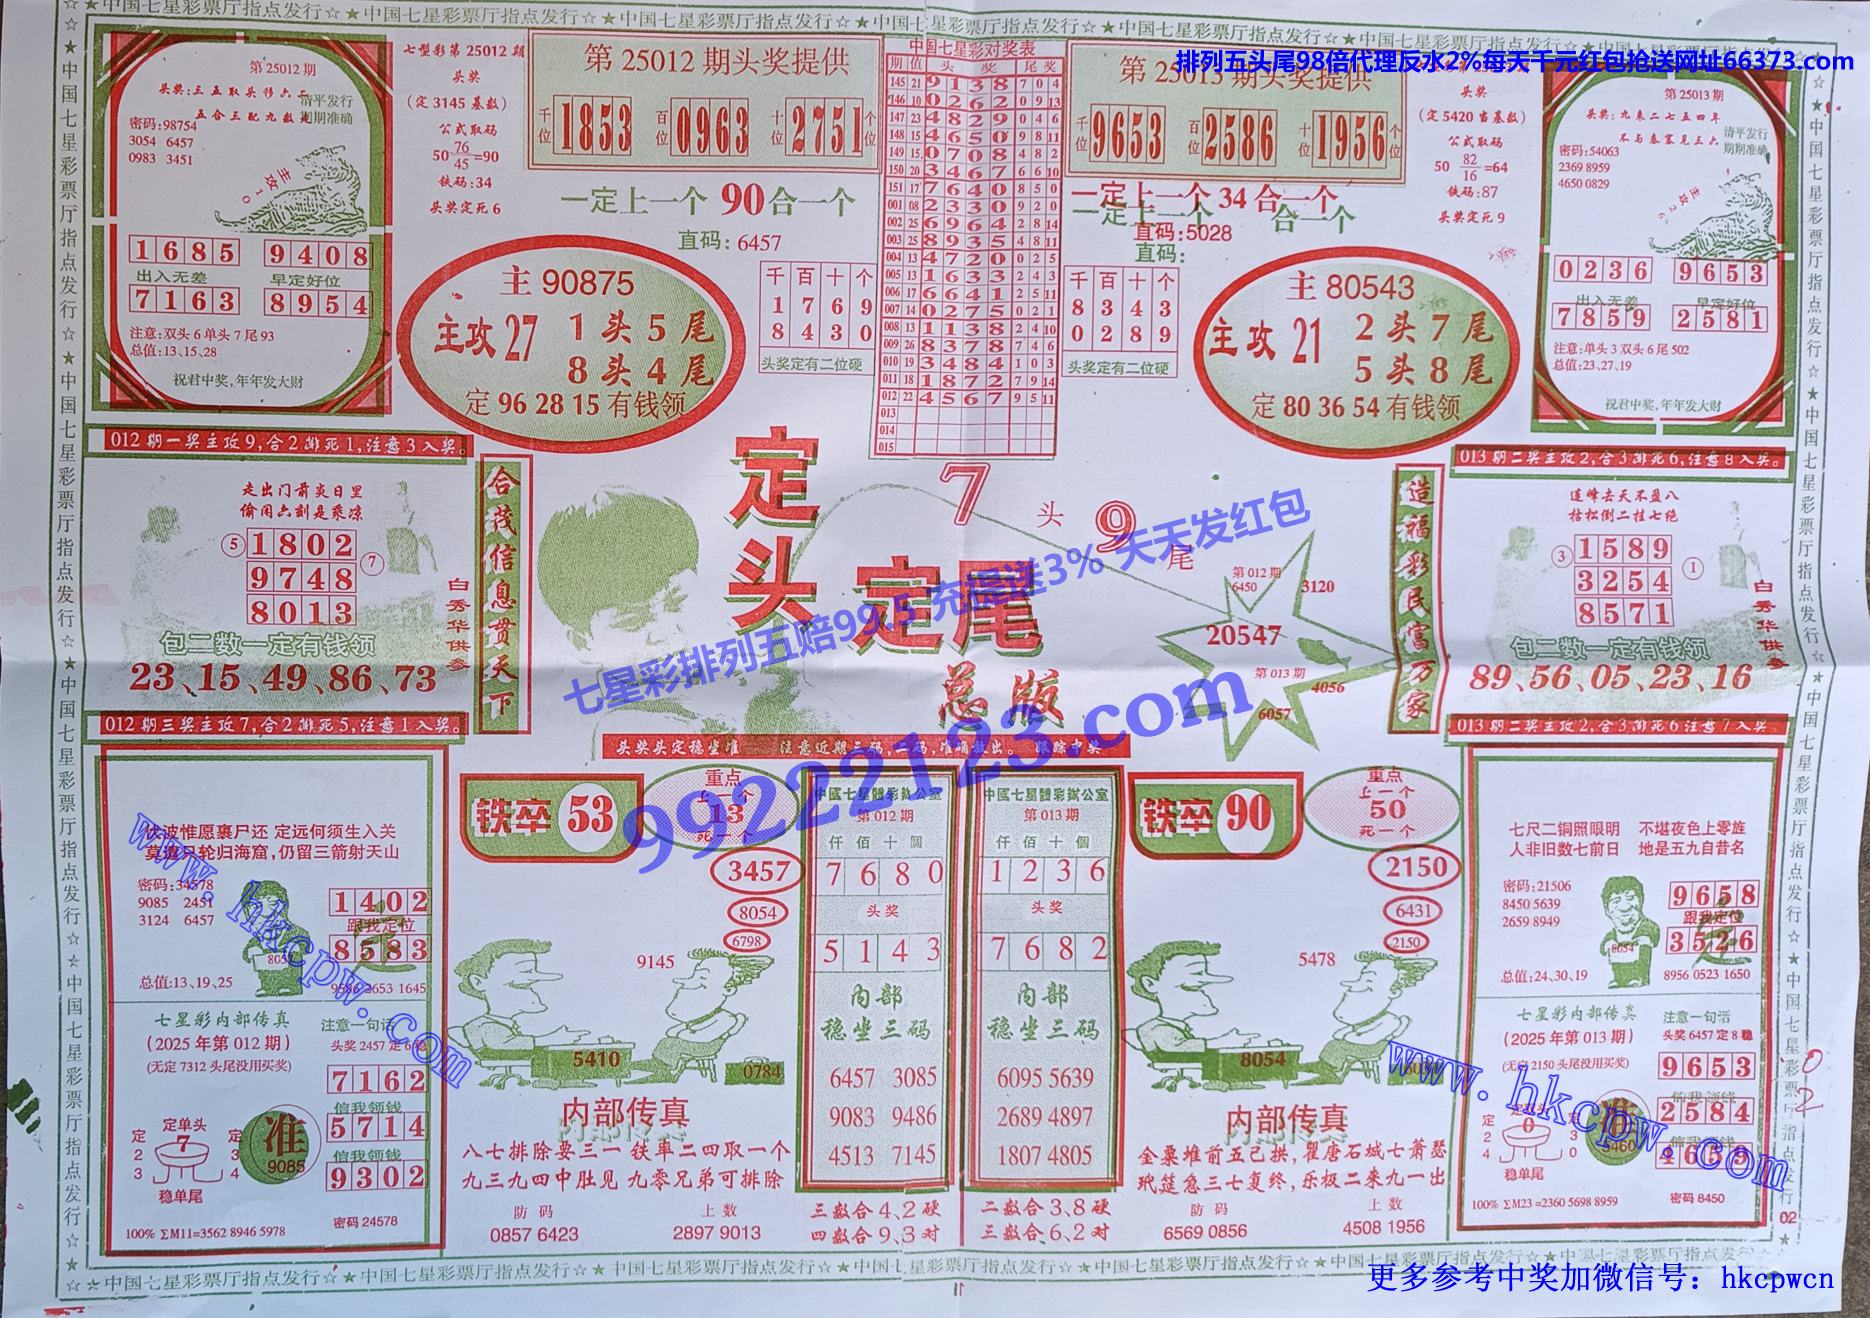 ☆★中国七星彩票厅指点发行☆★中国七星彩票厅指点发行☆★中国七星彩票厅指点发行☆
排列五头尾98倍代理反水2%每天千元红包抢送网址66373.com
第25012期
头奖:三五取头移六二
五合三配九数定
清平发行
期期准确
密码:98754
3054 6457
0983 3451
主攻10
1685 9408
出入无差 早定好位
7163 8954
注意:双头6单头7尾93
总值:13,15,28
祝君中奖,年年发大财
七型彩第25012期
头奖
(定3145基数)
公式取码
50 76/45 =90
铁码:34
头奖定死6
第25012期头奖提供
千位 1853 百位 0963 十位 2751 个位
一定上一个90合一个
直码:6457
主90875
主攻27 1头5尾
8头4尾
定962815有钱领
千百十个
1769
8430
头奖定有二位硬
中国七星彩对奖表
期 值 头奖 尾奖
145 21 9138 7 0 4
146 10 0262 0 9 13
147 23 4829 0 4 6
148 15 4650 9 8 11
149 15 0708 4 8 2
150 20 3467 6 6 10
151 17 7640 8 5 0
001 08 2330 9 2 0
002 25 6964 2 8 14
003 25 8935 4 8 11
004 13 4720 0 2 5
005 13 1633 2 4 3
006 17 6641 2 5 11
007 14 0275 0 2 1
008 13 1138 2 4 10
009 26 8378 7 4 6
010 19 3484 1 0 3
011 18 1872 7 9 14
012 22 4567 9 5 11
013
014
015
第25013期头奖提供
千位 9653 百位 2586 十位 1956 个位
一定上一个34合一个
一定上一个 合一个
直码:5028
直码:
千百十个
8343
0289
头奖定有二位硬
主80543
主攻21 2头7尾
5头8尾
定803654有钱领
头奖
(定5420当基数)
公式取码
50 82/16 =64
铁码:87
头奖定死9
第25013期
头奖:九来二七五四年
不与秦塞见三六
清平发行
期期准确
密码:54063
2369 8959
4650 0829
主攻26
0236 9653
出入无差 早定好位
7859 2581
注意:单头3双头6尾502
总值:23,27,19
祝君中奖,年年发大财
012期一奖主攻9,合2排死1,注意3入奖。
走出门前炎日里
偷闲六刻是乘凉
⑤ 1802 ⑦
9748
8013
白秀华供参
包二数一定有钱领
23、15、49、86、73
合茂信息贯天下
定头
定尾
总版
7头9尾
七星彩排列五赔99.5 充提送3% 天天发红包
99222123.com
头奖头定稳坐准 注意近期三码,二码,准确放出。 跟踪中奖
第012期
6450
3120
20547
第013期
4056
6057
造福彩民富万家
013期二奖主攻2,合3排死6,注意8入奖。
连峰去天不盈八
枯松倒二挂七绝
③ 1589 ①
3254
8571
白秀华供参
包二数一定有钱领
89、56、05、23、16
012期三奖主攻7,合2排死5,注意1入奖。
伏波惟愿裹尸还 定远何须生入关
莫遣只轮归海窟,仍留三箭射天山
密码:34578
9085 2451
3124 6457
1402
跟我定位
8583
805
总值:13,19,25
9586 2653 1645
七星彩内部传真
(2025年第012期)
(无定7312头尾没用买奖)
注意一句话
头奖2457定6稳
7162
信我领钱
5714
信我领钱
9302
定23 定单头 7 定34
稳单尾
准
9085
100% ΣM11=3562 8946 5978
密码24578
铁卒53
重点
上一个
13
死一个
3457
8054
6798
9145
5410
0784
内部传真
八七排除要三一 铁率二四取一个
九三九四中肚见 九零兄弟可排除
防码 上数
0857 6423 2897 9013
中國七星體彩辦公室
第012期
仟佰十個
7680
头奖
5143
内部
稳坐三码
6457 3085
9083 9486
4513 7145
三数合4、2硬
四数合9、3对
中國七星體彩辦公室
第013期
仟佰十個
1236
头奖
7682
内部
稳坐三码
6095 5639
2689 4897
1807 4805
二数合3、8硬
三数合6、2对
铁卒90
重点
上一个
50
死一个
2150
6431
2150
5478
8054
内部传真
金粟堆前五己拱,瞿唐石城七萧瑟
玳筵急三七复终,乐极二来九一出
防码 上数
6569 0856 4508 1956
013期二奖主攻2,合3排死6注意7入奖。
七尺二铜照眼明 不堪夜色上零旌
人非旧数七前日 地是五九自昔名
密码:21506
8450 5639
2659 8949
9658
跟我定位
3526
8054
总值:24,30,19
8956 0523 1650
七星彩内部传真
(2025年第013期)
(无定2150头尾没用买奖)
注意一句话
头奖6457定8稳
9653
信我领钱
2584
信我领钱
4659
定24 定单头 0 定30
稳单尾
准
5460
100% ΣM23=2360 5698 8959
密码8450
02
www.hkcpw.com
www.hkcpw.com
☆★中国七星彩票厅指点发行☆★中国七星彩票厅指点发行☆★中国七星彩票厅指点发行☆
更多参考中奖加微信号：hkcpwcn